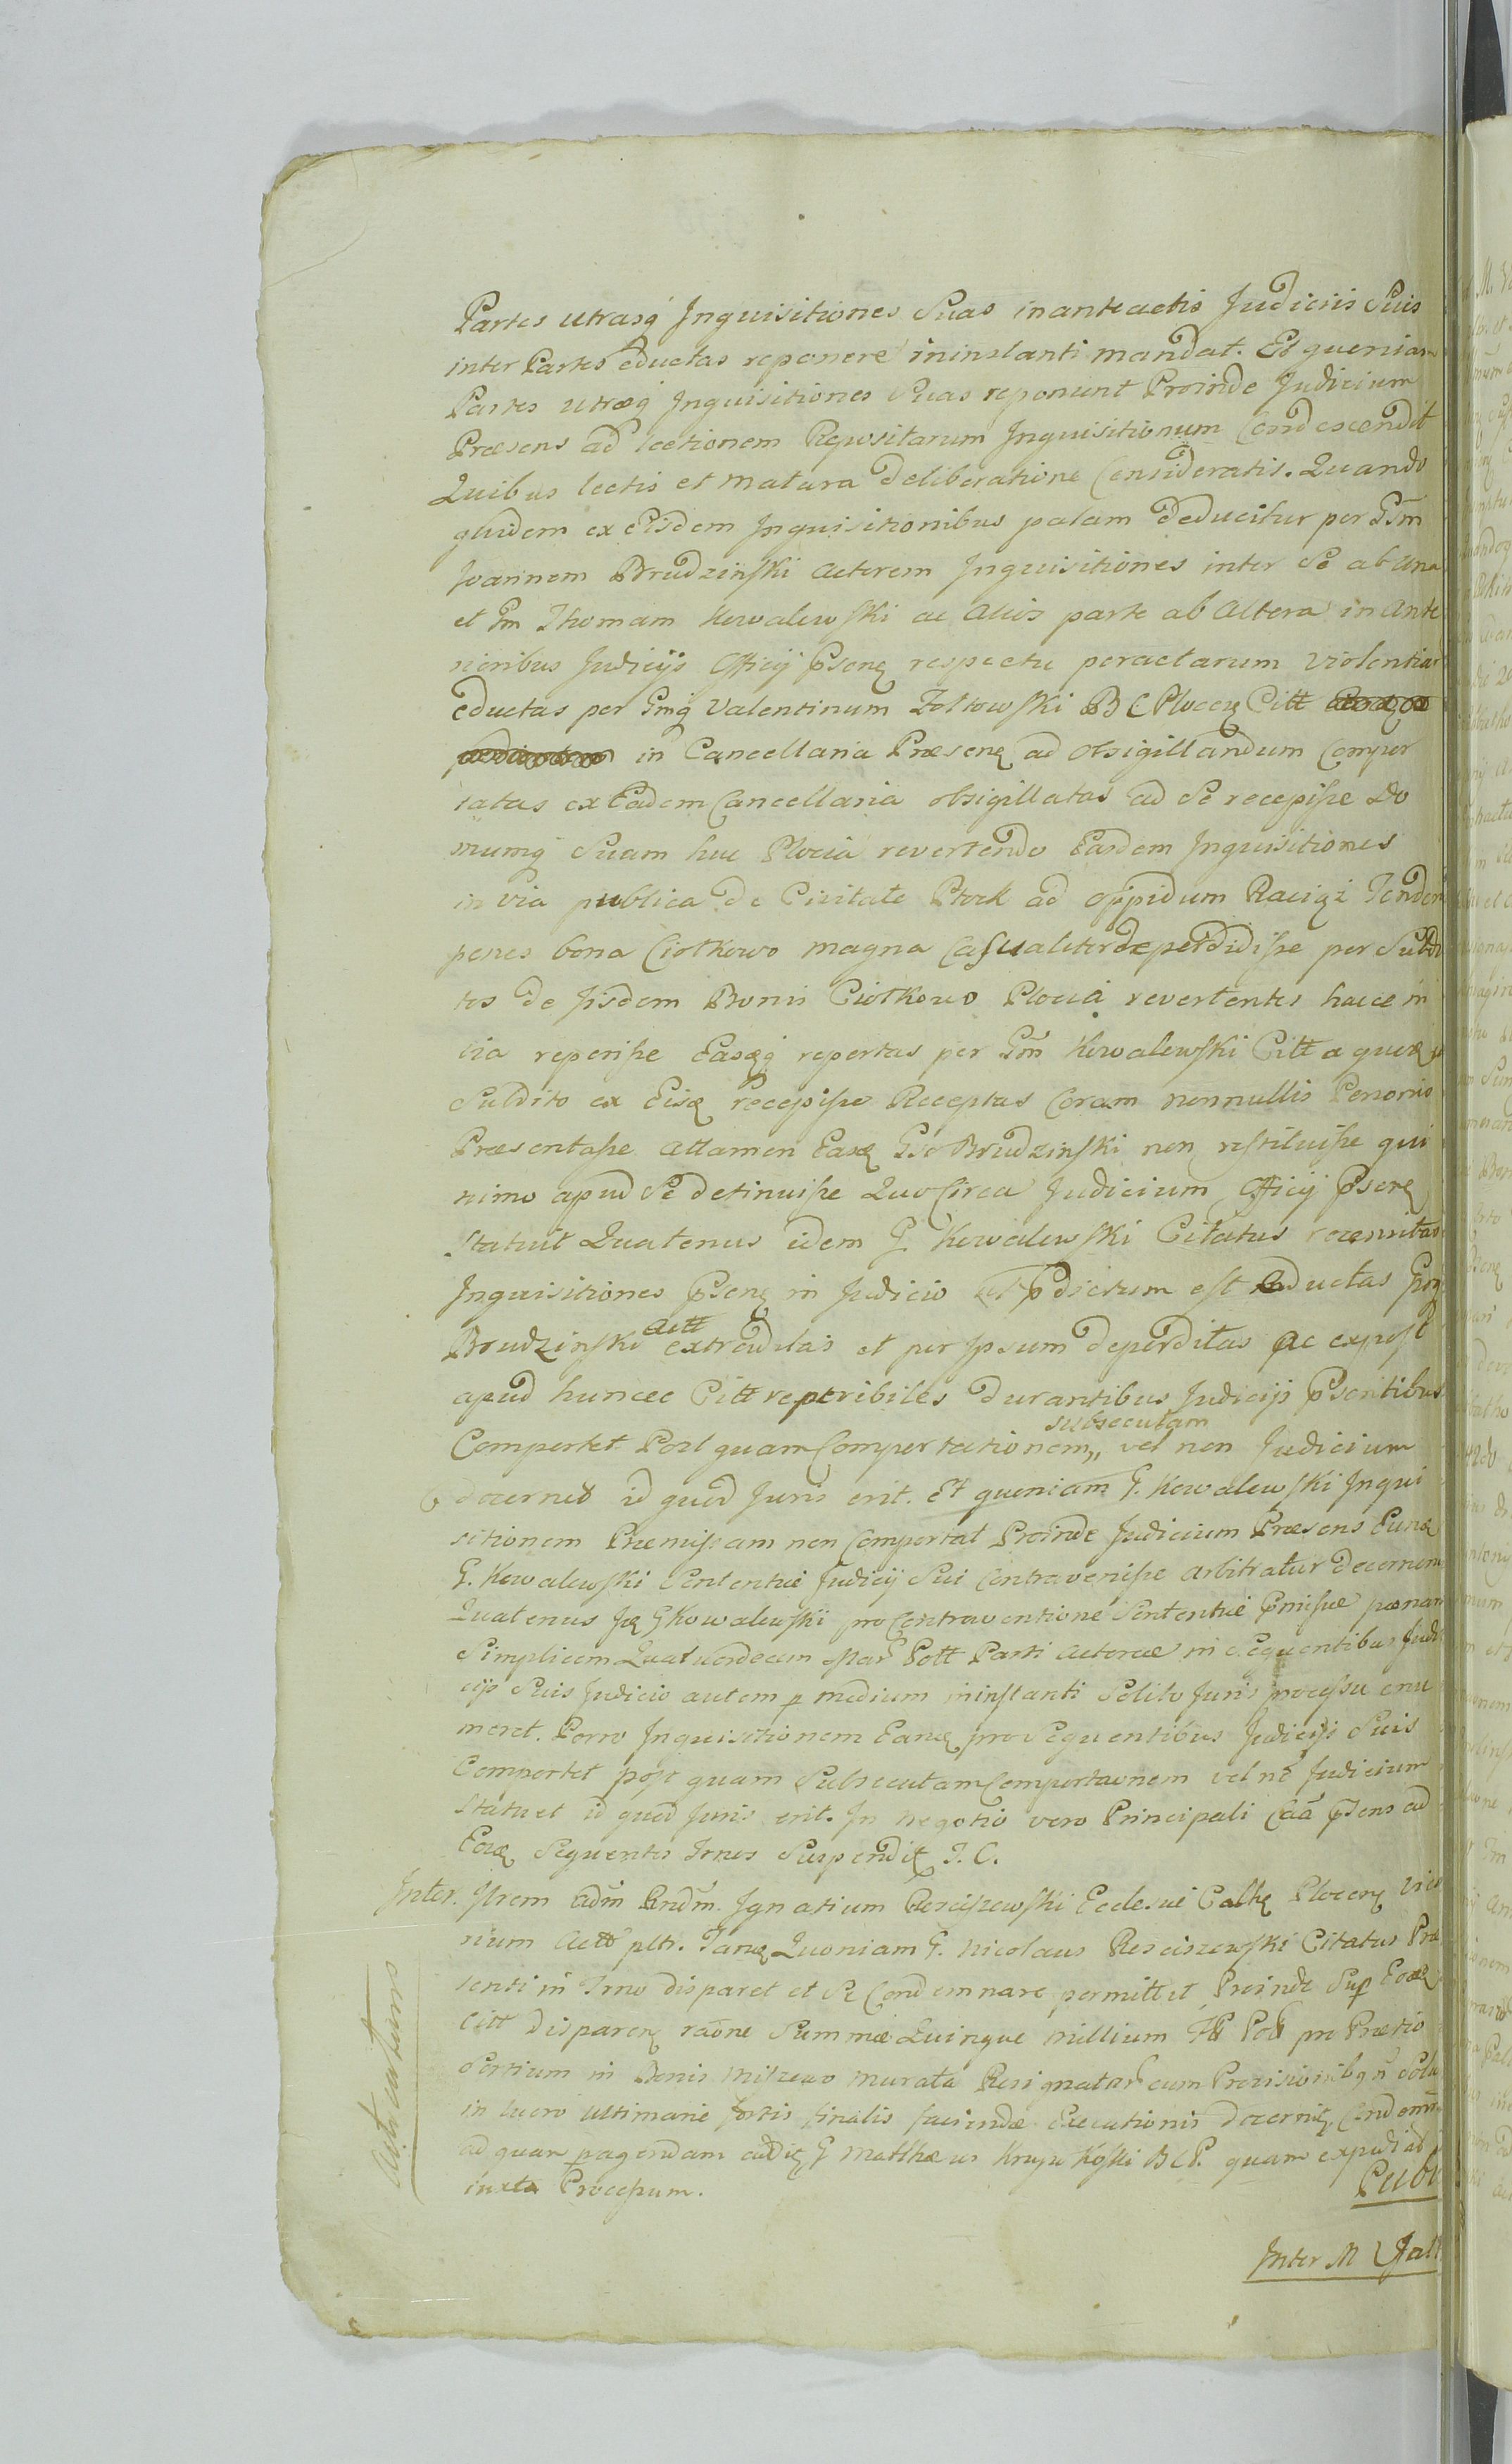 Partes utrasq Inquisitiones Suas in anteactis Judiciis Suis
inter Partes eductas reponere ininstanti mandat. Et quoniam
Partes utræq Inquisitiones Suas reponunt Proinde Judicium
Præsens ad lectionem Repositarum Inquisitionum Condescendit
Quibus lectis et matura deliberatione Consideratis. Quando
quidem ex Eisdem Inquisitionibus palam deducitur per Gsm
Joannem Brudzinski Actorem Inquisitiones inter Se ab una
et Gm Thomam Kowalewski ac Alios parte ab Altera in Ante
rioribus Judicijs Officij Psenę respectu peractarum violentiar
eductas per Gmq Valentinum Zołtowski B C Plocenę Citt
in Cancellaria Præsenę ad obsigillandum Compor
tatas ex Eadem Cancellaria obsigillatas ad Se recepisse Do
mumq Suam huc Plocia revertendo Easdem Inquisitiones
in via publica de Civitate Płock ad oppidum Raciąż Tenden
penes bona Ciołkowo magna Casualiter deperdidisse per Subdi
tos de Iisdem Bonis Ciołkowo Plociâ revertentes hacce in
via reperisse Easqę repertas per Gm Kowalewski Citt a quoę
Subdito ex Eisę recepisse Receptas Coram nonnullis Personis
Præsentasse attamen Easę Gso Brudzinski non restituisse qui
nimo apud Se detinuisse Quo Circa Judicium Officij Psenę
Statuit Quatenus idem G. Kowalewski Citatus recensitas
Inquisitiones Psenę in Judicio ut pdictum est eductas Gsoq
Brudzinski Actt extraditas et per Ipsum deperditas ac expost
apud huncce Citt reperibiles durantibus Judicijs Psentibus
Comportet. Post quam Comportationem,, subsecutam vel non Judicium
decernet id quod Juris erit. Et quoniam G. Kowalewski Inqui
sitionem Præmissam non Comportat Proinde Judicium Præsens Eunę
G. Kowalewski Sententiæ Judicij Sui Contravenisse arbitratur decernen
Quatenus Ję G Kowalewski pro Contraventione Sententiæ Pmissæ pœnam
Simplicem Quatuordecim Mar Poll Parti Actoreæ in Sequentibus Judi
cijs Suis Judicio autem p medium ininstanti Solito Juris processu enu
meret. Porro Inquisitionem Eanę pro Sequentibus Judicijs Suis
Comportet post quam Subsecutam Comportaonem vel nō Judicium
Statuet id quod Juris erit. In negotio vero Principali Caã Psens ad
Eosę Sequentes Trnos Suspendit J. C.
Inter. Ilrem Adm Rndm. Ignatium Resciszewski Ecclesiæ Cathę Plocenę Vica
rium Actt pltr. Tanę Quoniam G. Nicolaus Resciszewski Citatus Præ
senti in Trno disparet et Se Condemnare permittit Proinde Sup Eoę
Citt disparenę raõne Summæ Quinque millium Fl Poll pro Prætio
Sortium in Bonis Milzewo murata Resignatar cum Provisionibq n Solu
in lucro ultimarie fortis finalis faciendæ Executionis decernit, Condemn
ad quam pagendam addit G Matthæus Krysz Koski B C P. quam expediat
iuxta Processum.
Publ
Inter M Jall